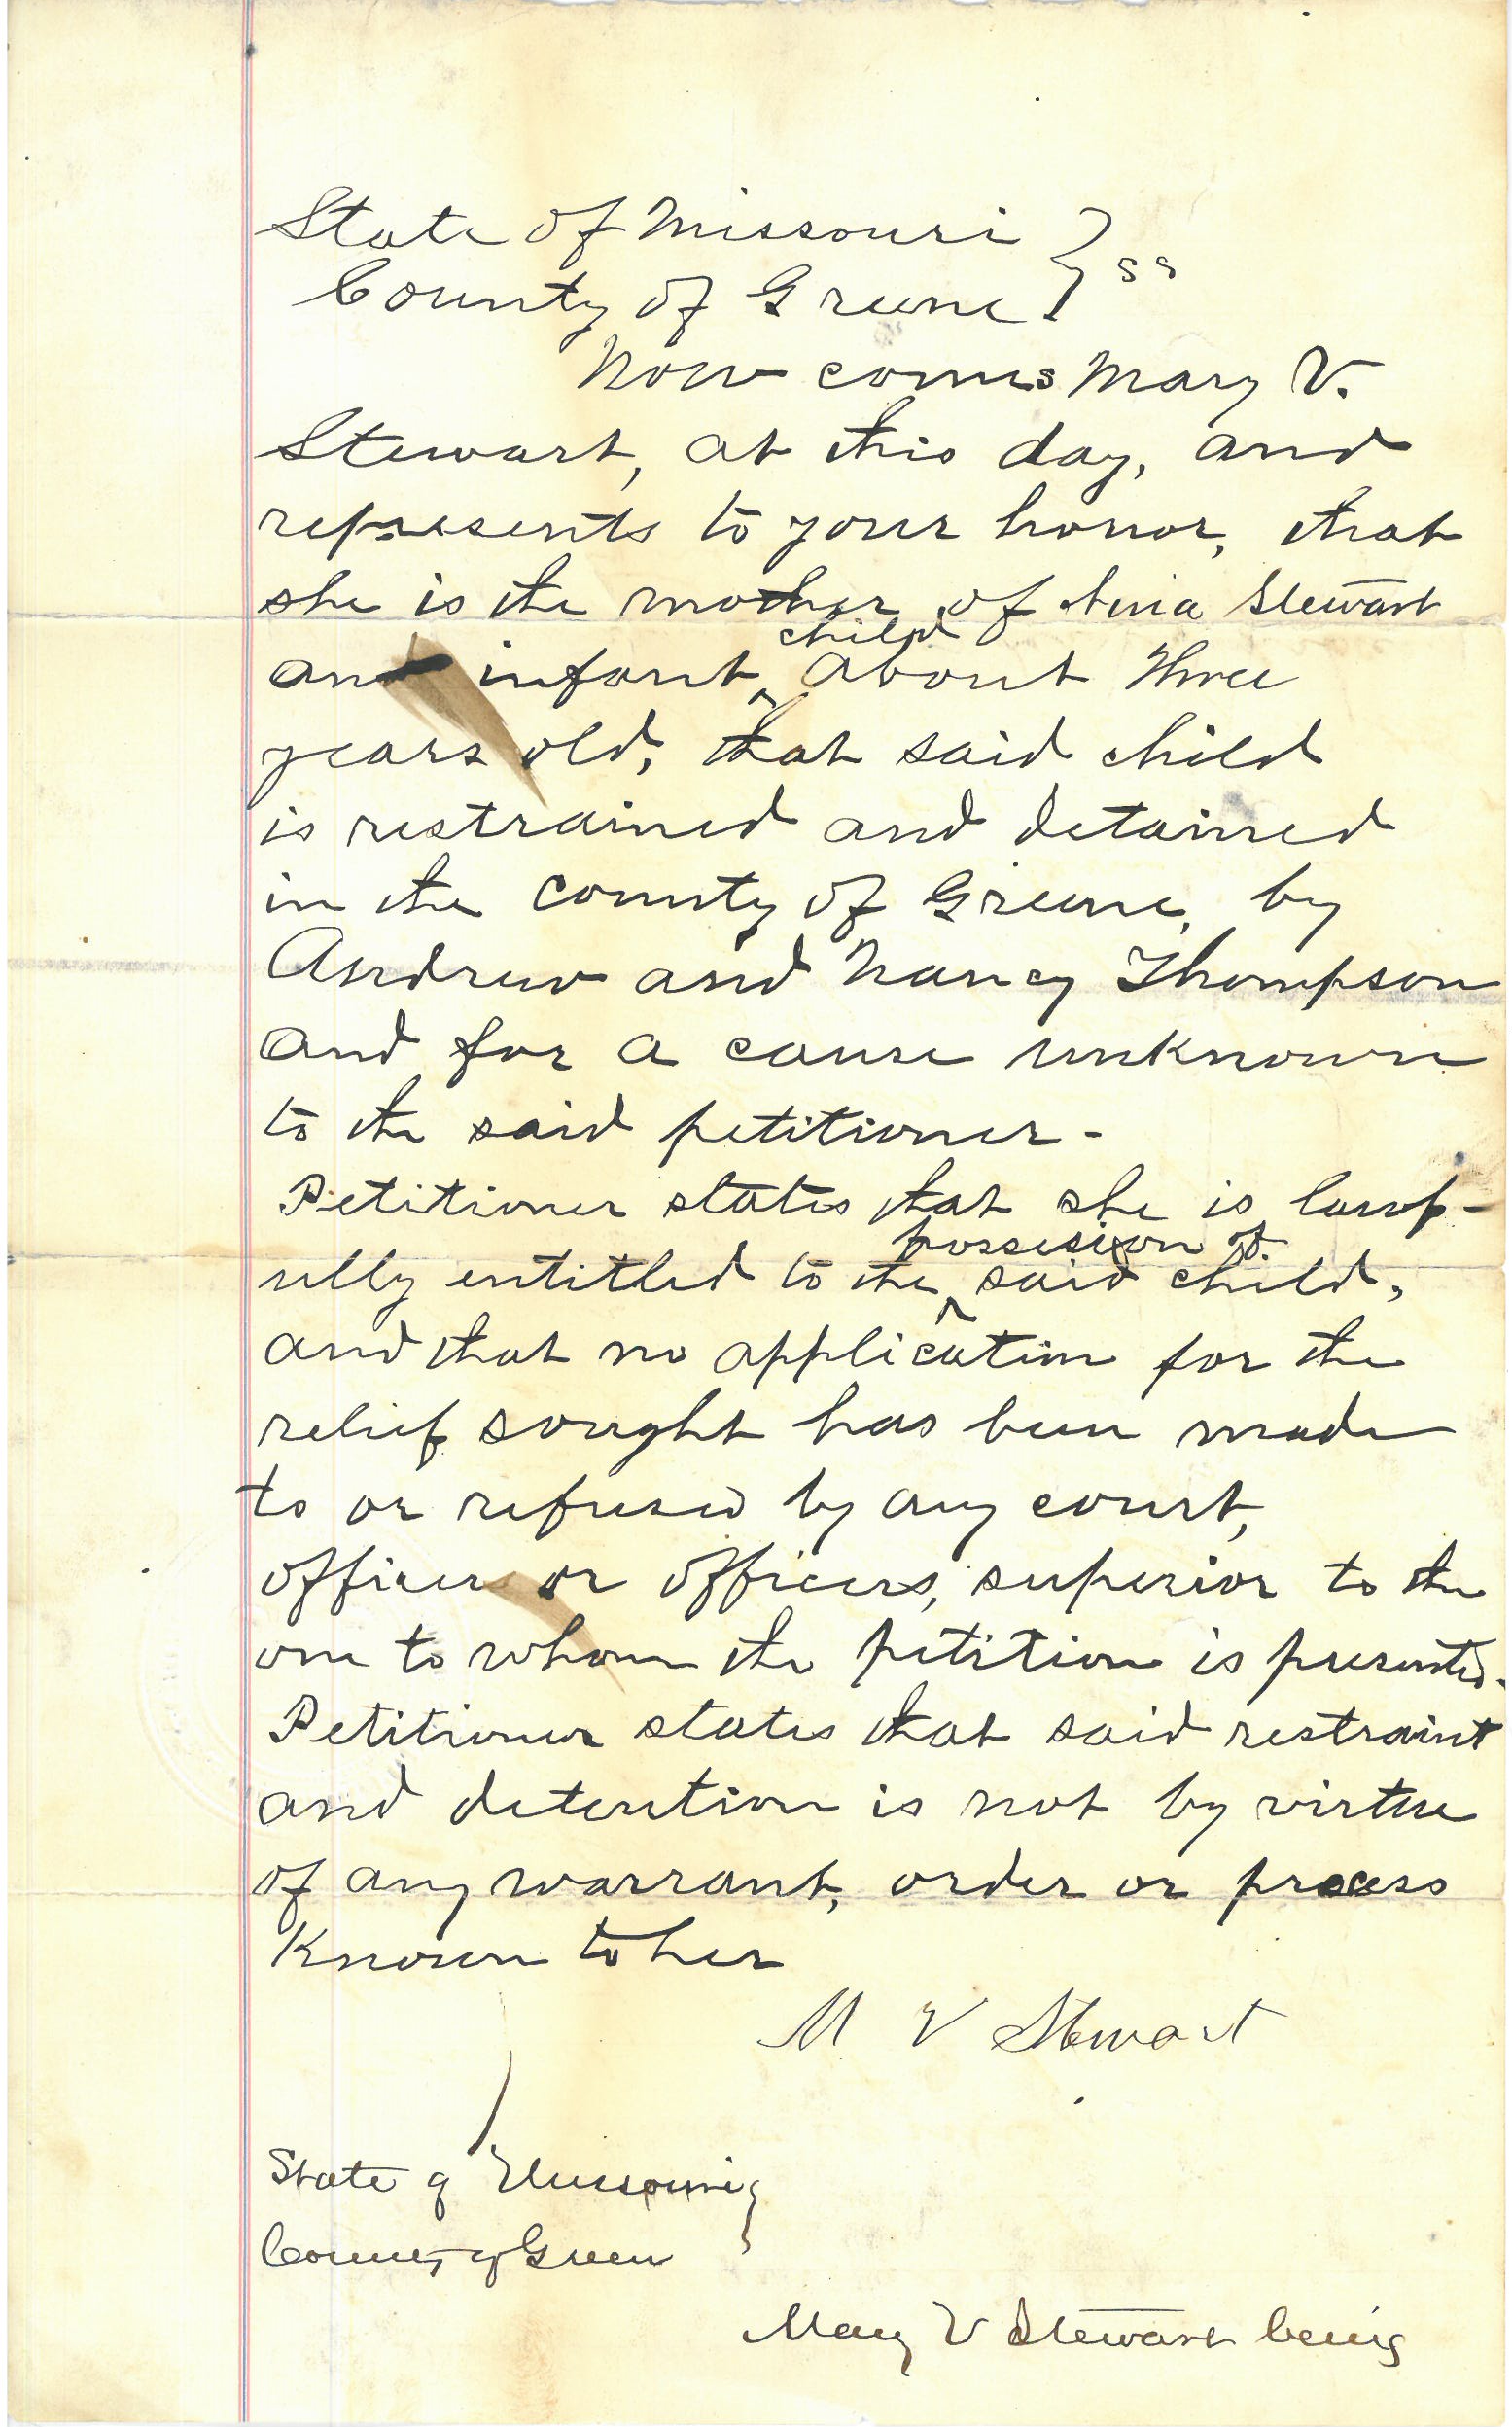 State of Missouri } ss
County of Greene }
Now comes Mary V.
Stewart, at this day, and
represents to your honor, that
she is the mother of Stewart
child
an infant ^ about three
years old, that said child
is restrained and detained
in the county of Greene, by
Andrew and Nancy Thompson
and for a cause unknown
to the said petitioner-
Petitioner states that she is lawf-
possession of
ully entitled to the ^ said child,
and that no application for the
relief sought has been made
to or refused by any court,
officer or officers, superior to the
one to whom the petition is presented.
Petitioner states that said restraint
and detention is not by virtue
of any warrant, order or process
Known to her
M V Stewart
State of Missouri }
County of Green
Mary V Stewart being